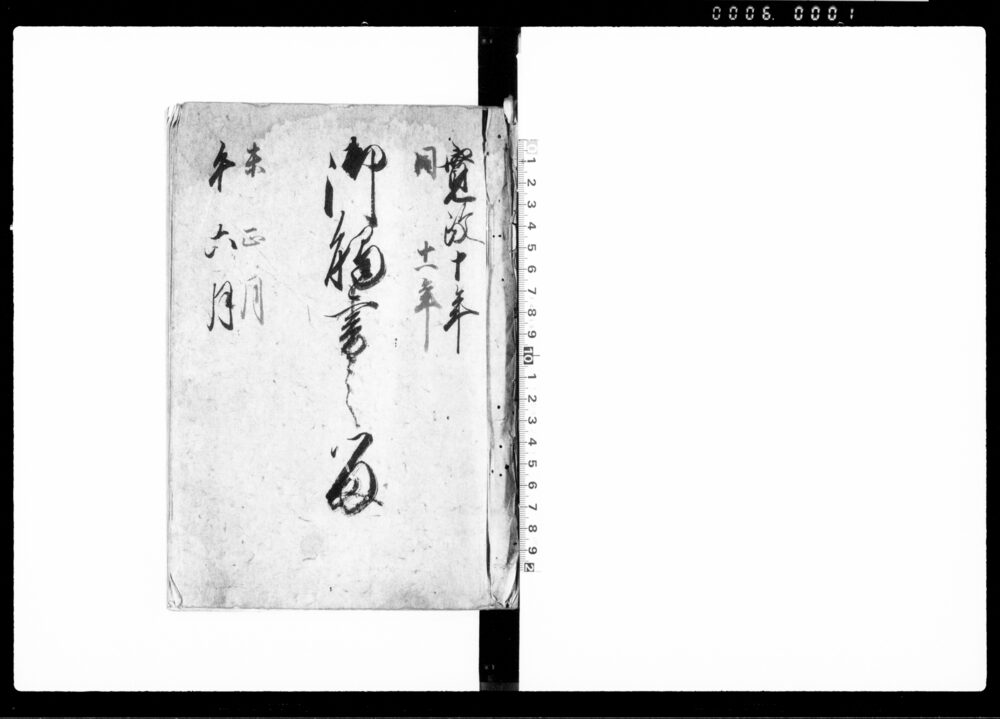 0006. 0001
寛政十年
同 十一年
御觸書之留
未 正月
午 六月
0 1 2 3 4 5 6 7 8 9 10 1 2 3 4 5 6 7 8 9 2